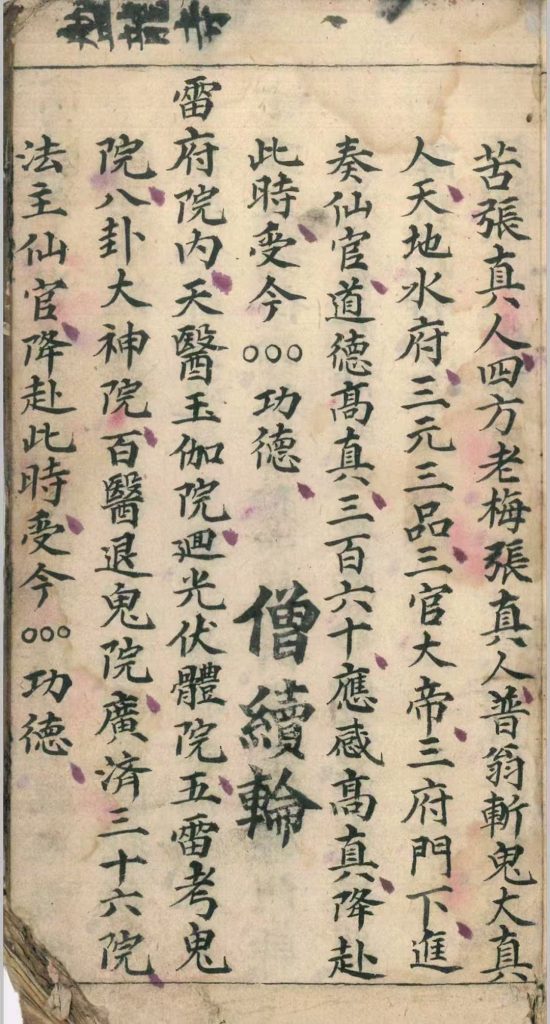 苦張真人四方老梅張真人普翁斬鬼大真
人天地水府三元三品三官大帝三府門下進
奏仙官道德髙真三百六十應感髙真降赴
此時受今○○○功德
僧續輪
雷府院内天醫玉伽院廻光伏體院五雷考鬼
院八卦大神院百醫退鬼院廣済三十六院
法主仙官降赴此時受今○○○功德